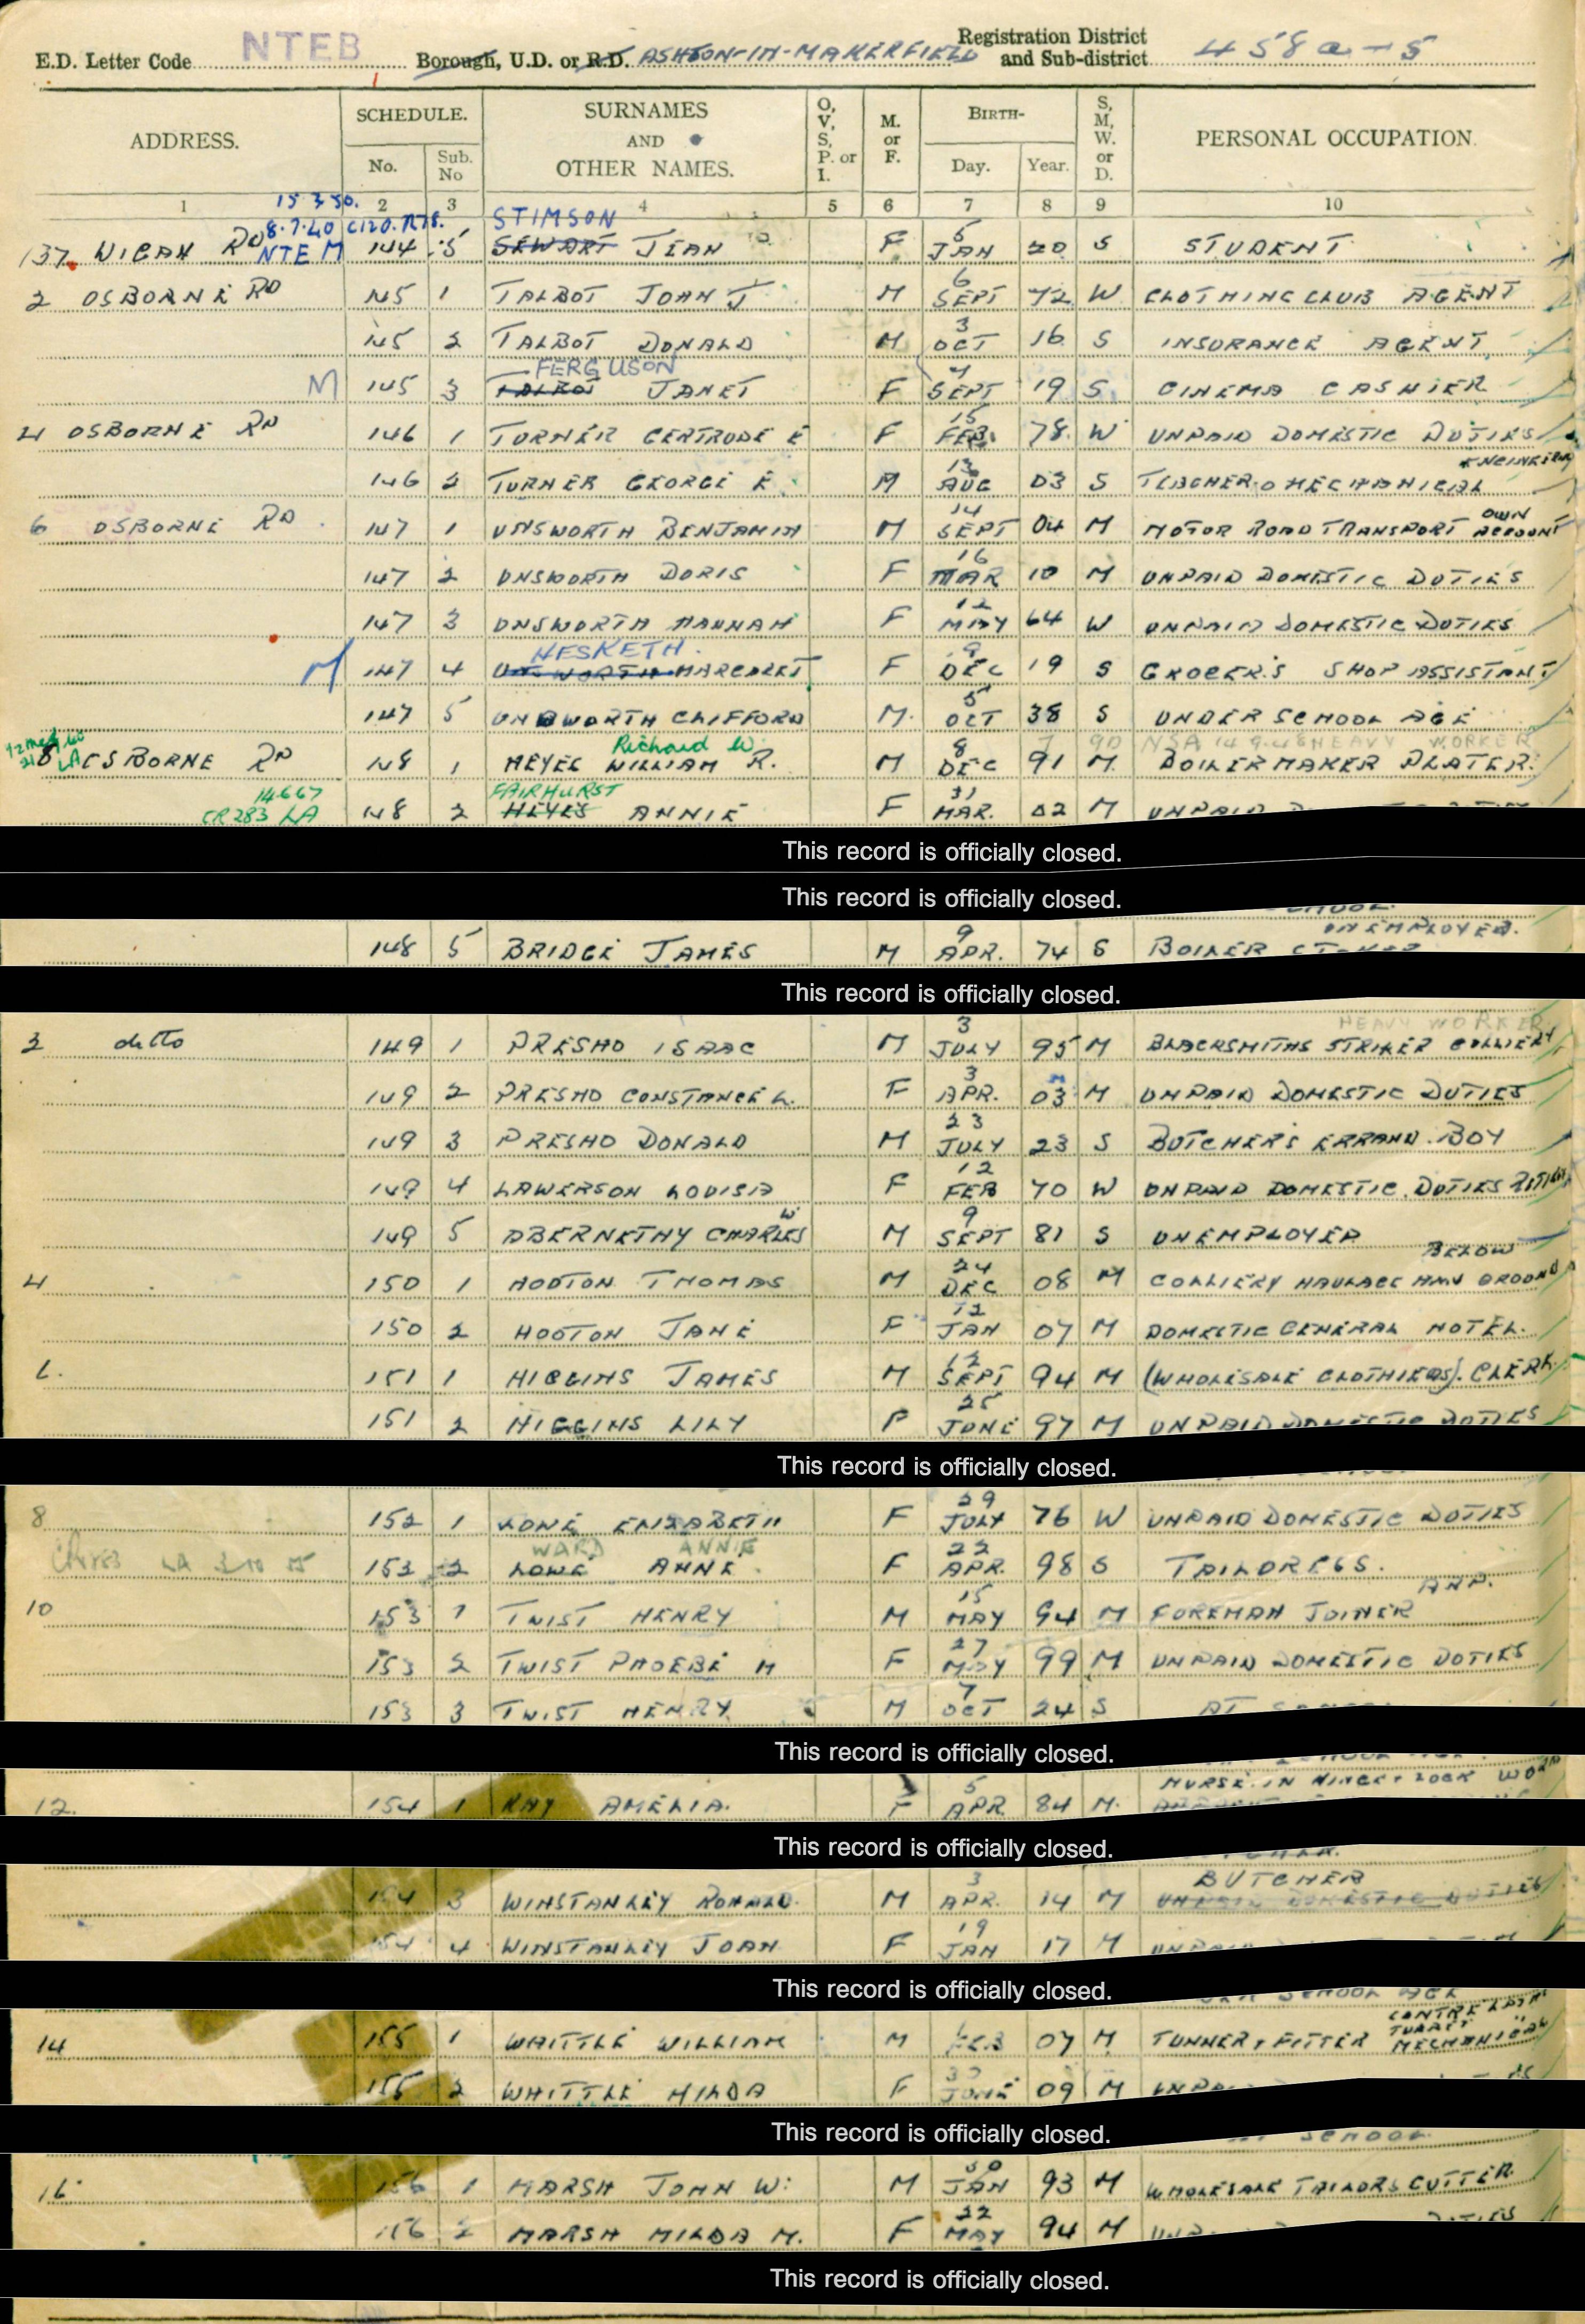 E.D. Letter Code NTEB Borough, U.D. or R.D. ASHTON-IN-MAKERFIELD Registration District and Sub-district 458a-5
ADDRESS. SCHEDULE. No. Sub. No SURNAMES AND OTHER NAMES. O, V, S, P. or I. M. or F. BIRTH- Day. Year. S, M, W. or D. PERSONAL OCCUPATION.
1 2 3 4 5 6 7 8 9 10
15.3.50.
8.7.40 C120. R78. STIMSON
137 WIGAN RD NTE M 144 5 SEWART JEAN F 5 JAN 20 S STUDENT
2 OSBORNE RD 145 1 TALBOT JOHN J M 6 SEPT 72 W CLOTHING CLUB AGENT
145 2 TALBOT DONALD M 3 OCT 16 S INSURANCE AGENT
FERGUSON
M 145 3 TALBOT JANET F 4 SEPT 19 S CINEMA CASHIER
4 OSBORNE RD 146 1 TURNER GERTRUDE E F 15 FEB 78 W UNPAID DOMESTIC DUTIES
146 2 TURNER GEORGE E. M 13 AUG 03 S TEACHER MECHANICAL ENGINEERING
6 OSBORNE RD 147 1 UNSWORTH BENJAMIN M 14 SEPT 04 M MOTOR ROAD TRANSPORT OWN ACCOUNT
147 2 UNSWORTH DORIS F 16 MAR 10 M UNPAID DOMESTIC DUTIES
147 3 UNSWORTH HANNAH F 12 MAY 64 W UNPAID DOMESTIC DUTIES
HESKETH.
M 147 4 UNSWORTH MARGARET F 9 DEC 19 S GROCER'S SHOP ASSISTANT
147 5 UNSWORTH CLIFFORD M 5 OCT 38 S UNDER SCHOOL AGE
Richard W. HEAVY WORKER
8 OSBORNE RD 148 1 HEYES WILLIAM R. M 8 DEC 91 M BOILERMAKER PLATER.
14667 FAIRHURST
CR283 LA 148 2 HEYES ANNIE F 31 MAR. 02 M UNPAID
This record is officially closed.
This record is officially closed.
148 5 BRIDGE JAMES M 9 APR. 74 S BOILER UNEMPLOYED.
This record is officially closed.
HEAVY WORKER
2 ditto 149 1 PRESHO ISAAC M 3 JULY 95 M BLACKSMITHS STRIKER COLLIERY
149 2 PRESHO CONSTANCE L. F 3 APR. 03 M UNPAID DOMESTIC DUTIES
149 3 PRESHO DONALD M 23 JULY 23 S BUTCHER'S ERRAND BOY
149 4 LAWERSON LOUISA F 12 FEB 70 W UNPAID DOMESTIC DUTIES
149 5 ABERNETHY CHARLES W M 9 SEPT 81 S UNEMPLOYED
4 150 1 HOOTON THOMAS M 24 DEC 08 M COLLIERY HAULAGE HAND BELOW GROUND
150 2 HOOTON JANE F 12 JAN 07 M DOMESTIC GENERAL HOTEL.
6. 151 1 HIGGINS JAMES M 12 SEPT 94 M (WHOLESALE CLOTHIERS). CLERK.
151 2 HIGGINS LILY F 25 JUNE 97 M UNPAID DOMESTIC DUTIES
This record is officially closed.
8 152 1 LOWE ELIZABETH F 29 JULY 76 W UNPAID DOMESTIC DUTIES
WARD ANNIE
152 2 LOWE ANNE F 22 APR. 98 S TAILORESS.
10 153 1 TWIST HENRY M 15 MAY 94 M FOREMAN JOINER
153 2 TWIST PHOEBE M F 27 MAY 99 M UNPAID DOMESTIC DUTIES
153 3 TWIST HENRY M 7 OCT 24 S AT
This record is officially closed.
12. 154 1 RAY AMELIA. F 5 APR 84 M.
This record is officially closed.
BUTCHER
154 3 WINSTANLEY RONALD. M 3 APR. 14 M UNPAID DOMESTIC DUTIES
154 4 WINSTANLEY JOAN F 19 JAN 17 M UNPAID
This record is officially closed.
14 155 1 WHITTLE WILLIAM M FEB 07 M TURNER & FITTER CENTRE LATHE TURRET MECHANICAL
155 2 WHITTLE HILDA F 30 JUNE 09 M
This record is officially closed.
SCHOOL
16 156 1 MARSH JOHN W. M 30 JAN 93 M WHOLESALE TAILORS CUTTER
156 2 MARSH HILDA M. F 22 MAY 94 M DUTIES
This record is officially closed.